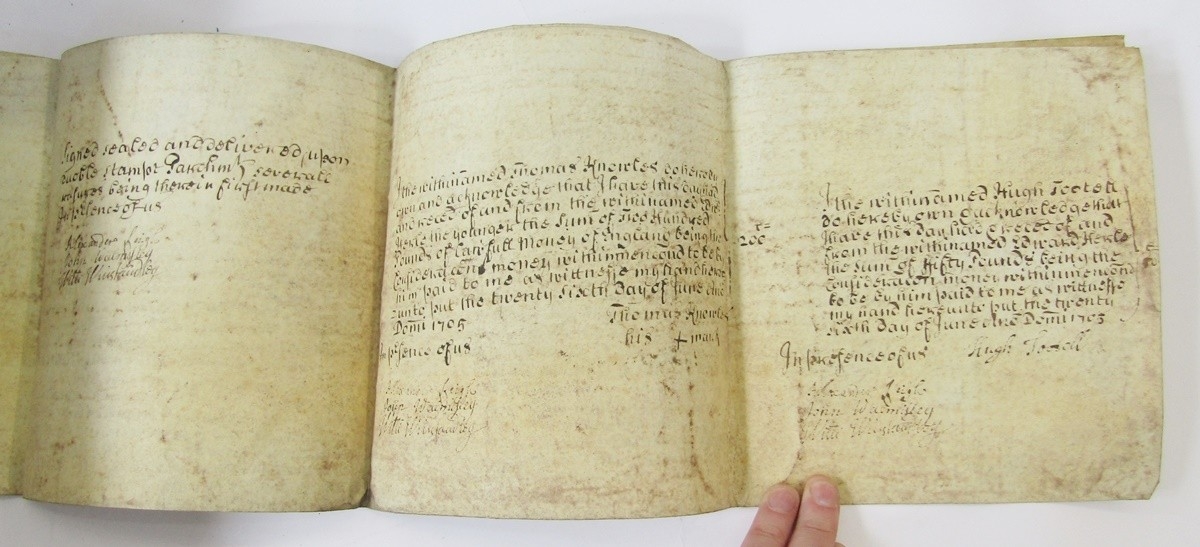 Signed sealed and delivered upon
double Stampt Parchmt severall
rasures being therein first made
In p'sence of us
Alexander Leigh
John Walmsley
Willm Winstandley
I the within named Thomas Knowles do hereby
own and acknowledge that I have this day had
and receed of and from the within named Edw:
Herle the yo'nger the Sum of Two Hundred
Pounds of Lawfull Money of England being the
Consideracon money within mencond to be by
him paid to me as wittnesse my hand here
unto put the twenty Sixth Day of June Ano
Domi 1703
Thomas Knowles
his + mark
In p'sence of us
Alexander Leigh
John Walmsley
Willm Winstandley
200
I the within named Hugh Tootell
do hereby own & acknowledge that
I have this day had & receed of and
from the within named Edward Herle
the sum of fifty Pounds being the
Consideracon money within mencond
to be by him paid to me as wittnesse
my hand hereunto put the twenty
sixth Day of June Ano Domi 1703
Hugh Tootell
In presence of us
Alexander Leigh
John Walmsley
Willm Winstandley